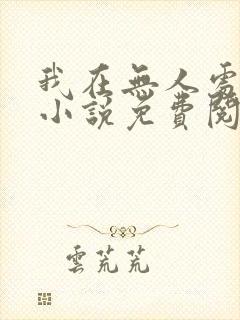 我在無人處
小說免費閱
雲荒荒